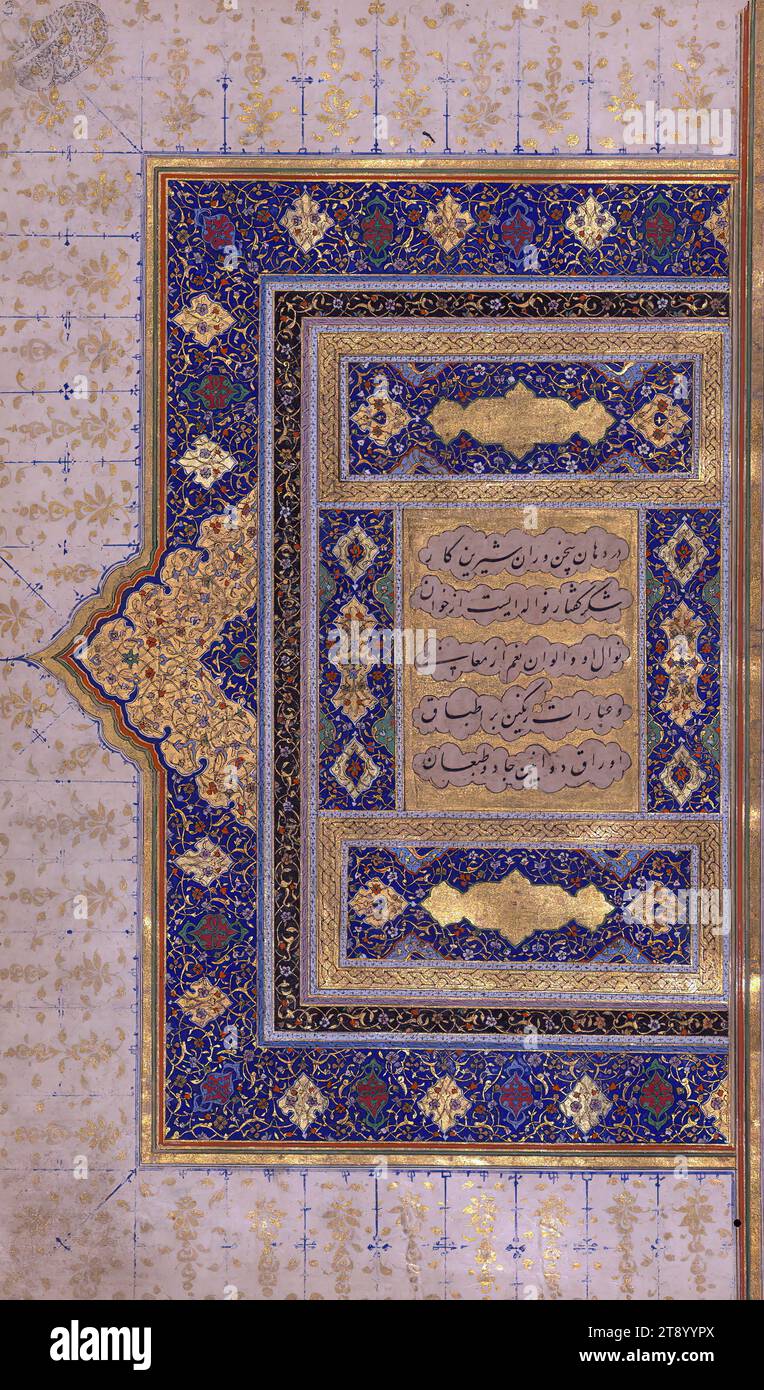 در دهان سخن وران شیرین کار
شکر گفتار نواله ایست از خوان
نوال او و الوان نغم از معانی
و عبارات رنگین بر اطباق
اوراق دواوین جادو طبعان
alamy
Image ID: 2T8YYPX
www.alamy.com